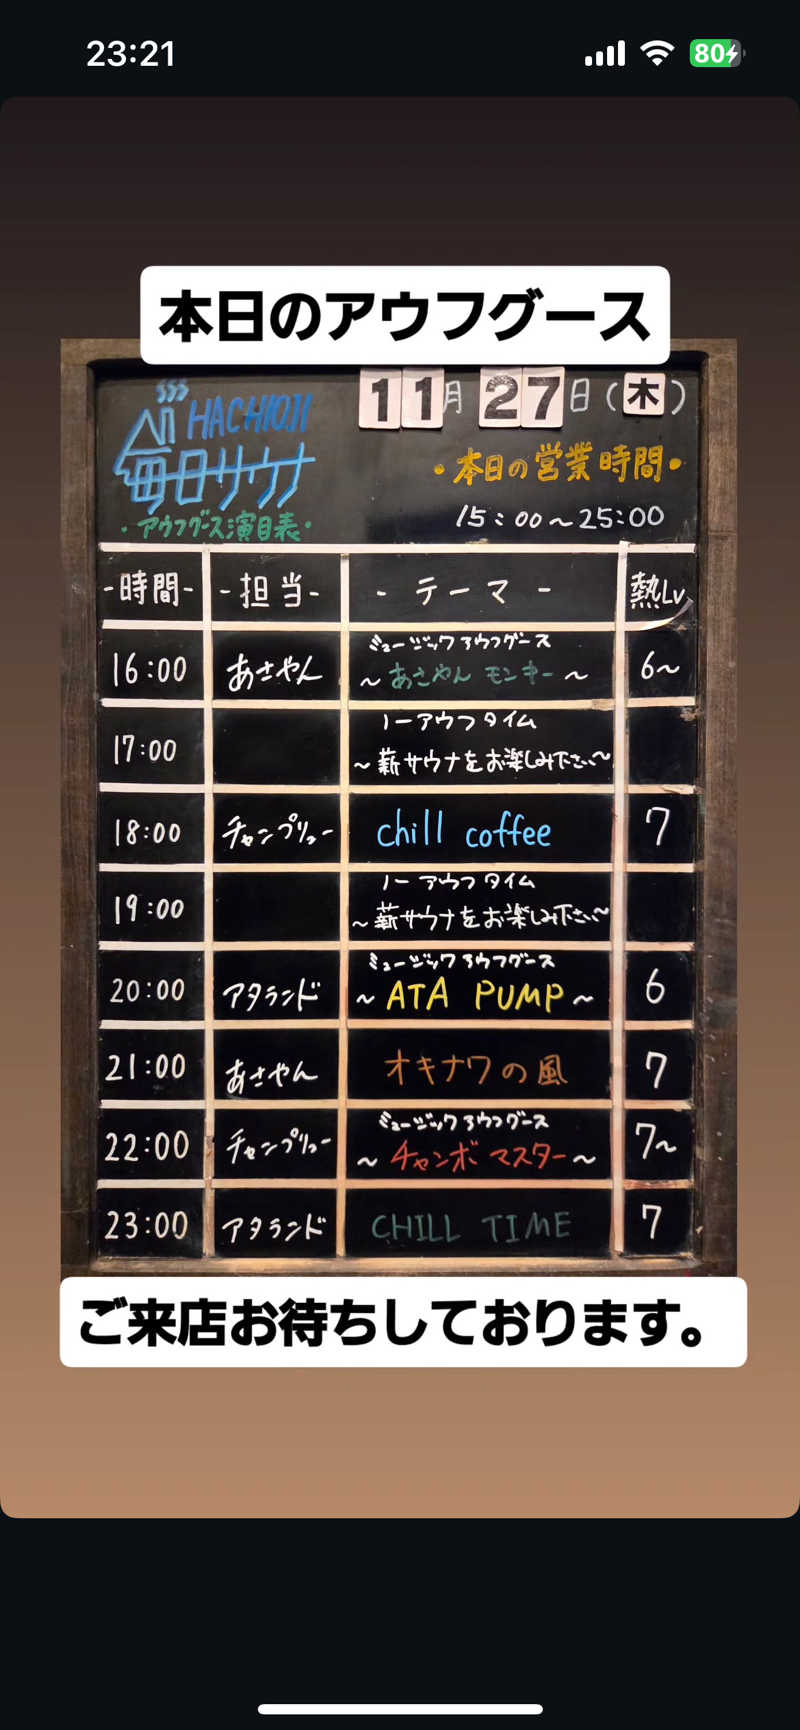 23:21
80
本日のアウフグース
HACHIOJI
毎日サウナ
・アウフグース演目表・
11月27日(木)
・本日の営業時間・
15:00~25:00
-時間- -担当- - テーマ - 熱Lv
ミュージックアウフグース
16:00 あさやん ~あさやん モンキー~ 6~
ノーアウフタイム
17:00 ~薪サウナをお楽しみ下さい~
18:00 チャンプリュー chill coffee 7
ノーアウフタイム
19:00 ~薪サウナをお楽しみ下さい~
ミュージックアウフグース
20:00 アタランド ~ATA PUMP~ 6
21:00 あさやん オキナワの風 7
ミュージックアウフグース
22:00 チャンプリュー ~チャンボマスター~ 7~
23:00 アタランド CHILL TIME 7
ご来店お待ちしております。